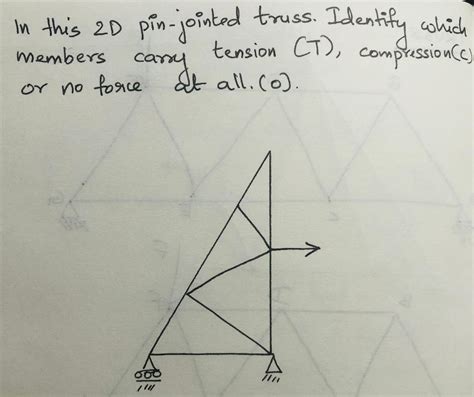 In this 2D pin-jointed truss. Identify which
members carry tension (T), compression(c)
or no force at all.(0).